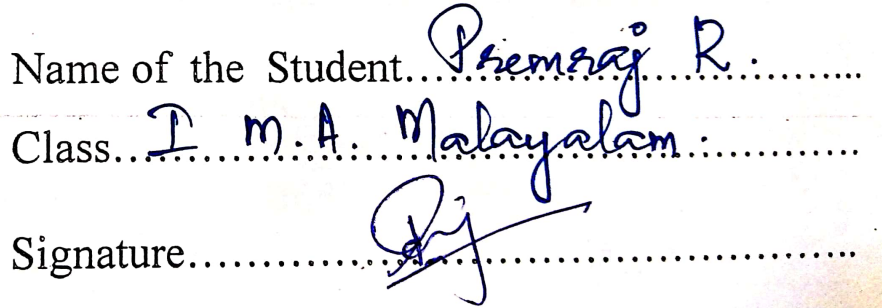 Name of the Student....Premraj R.............
Class....I M.A. Malayalam.................
Signature................................................